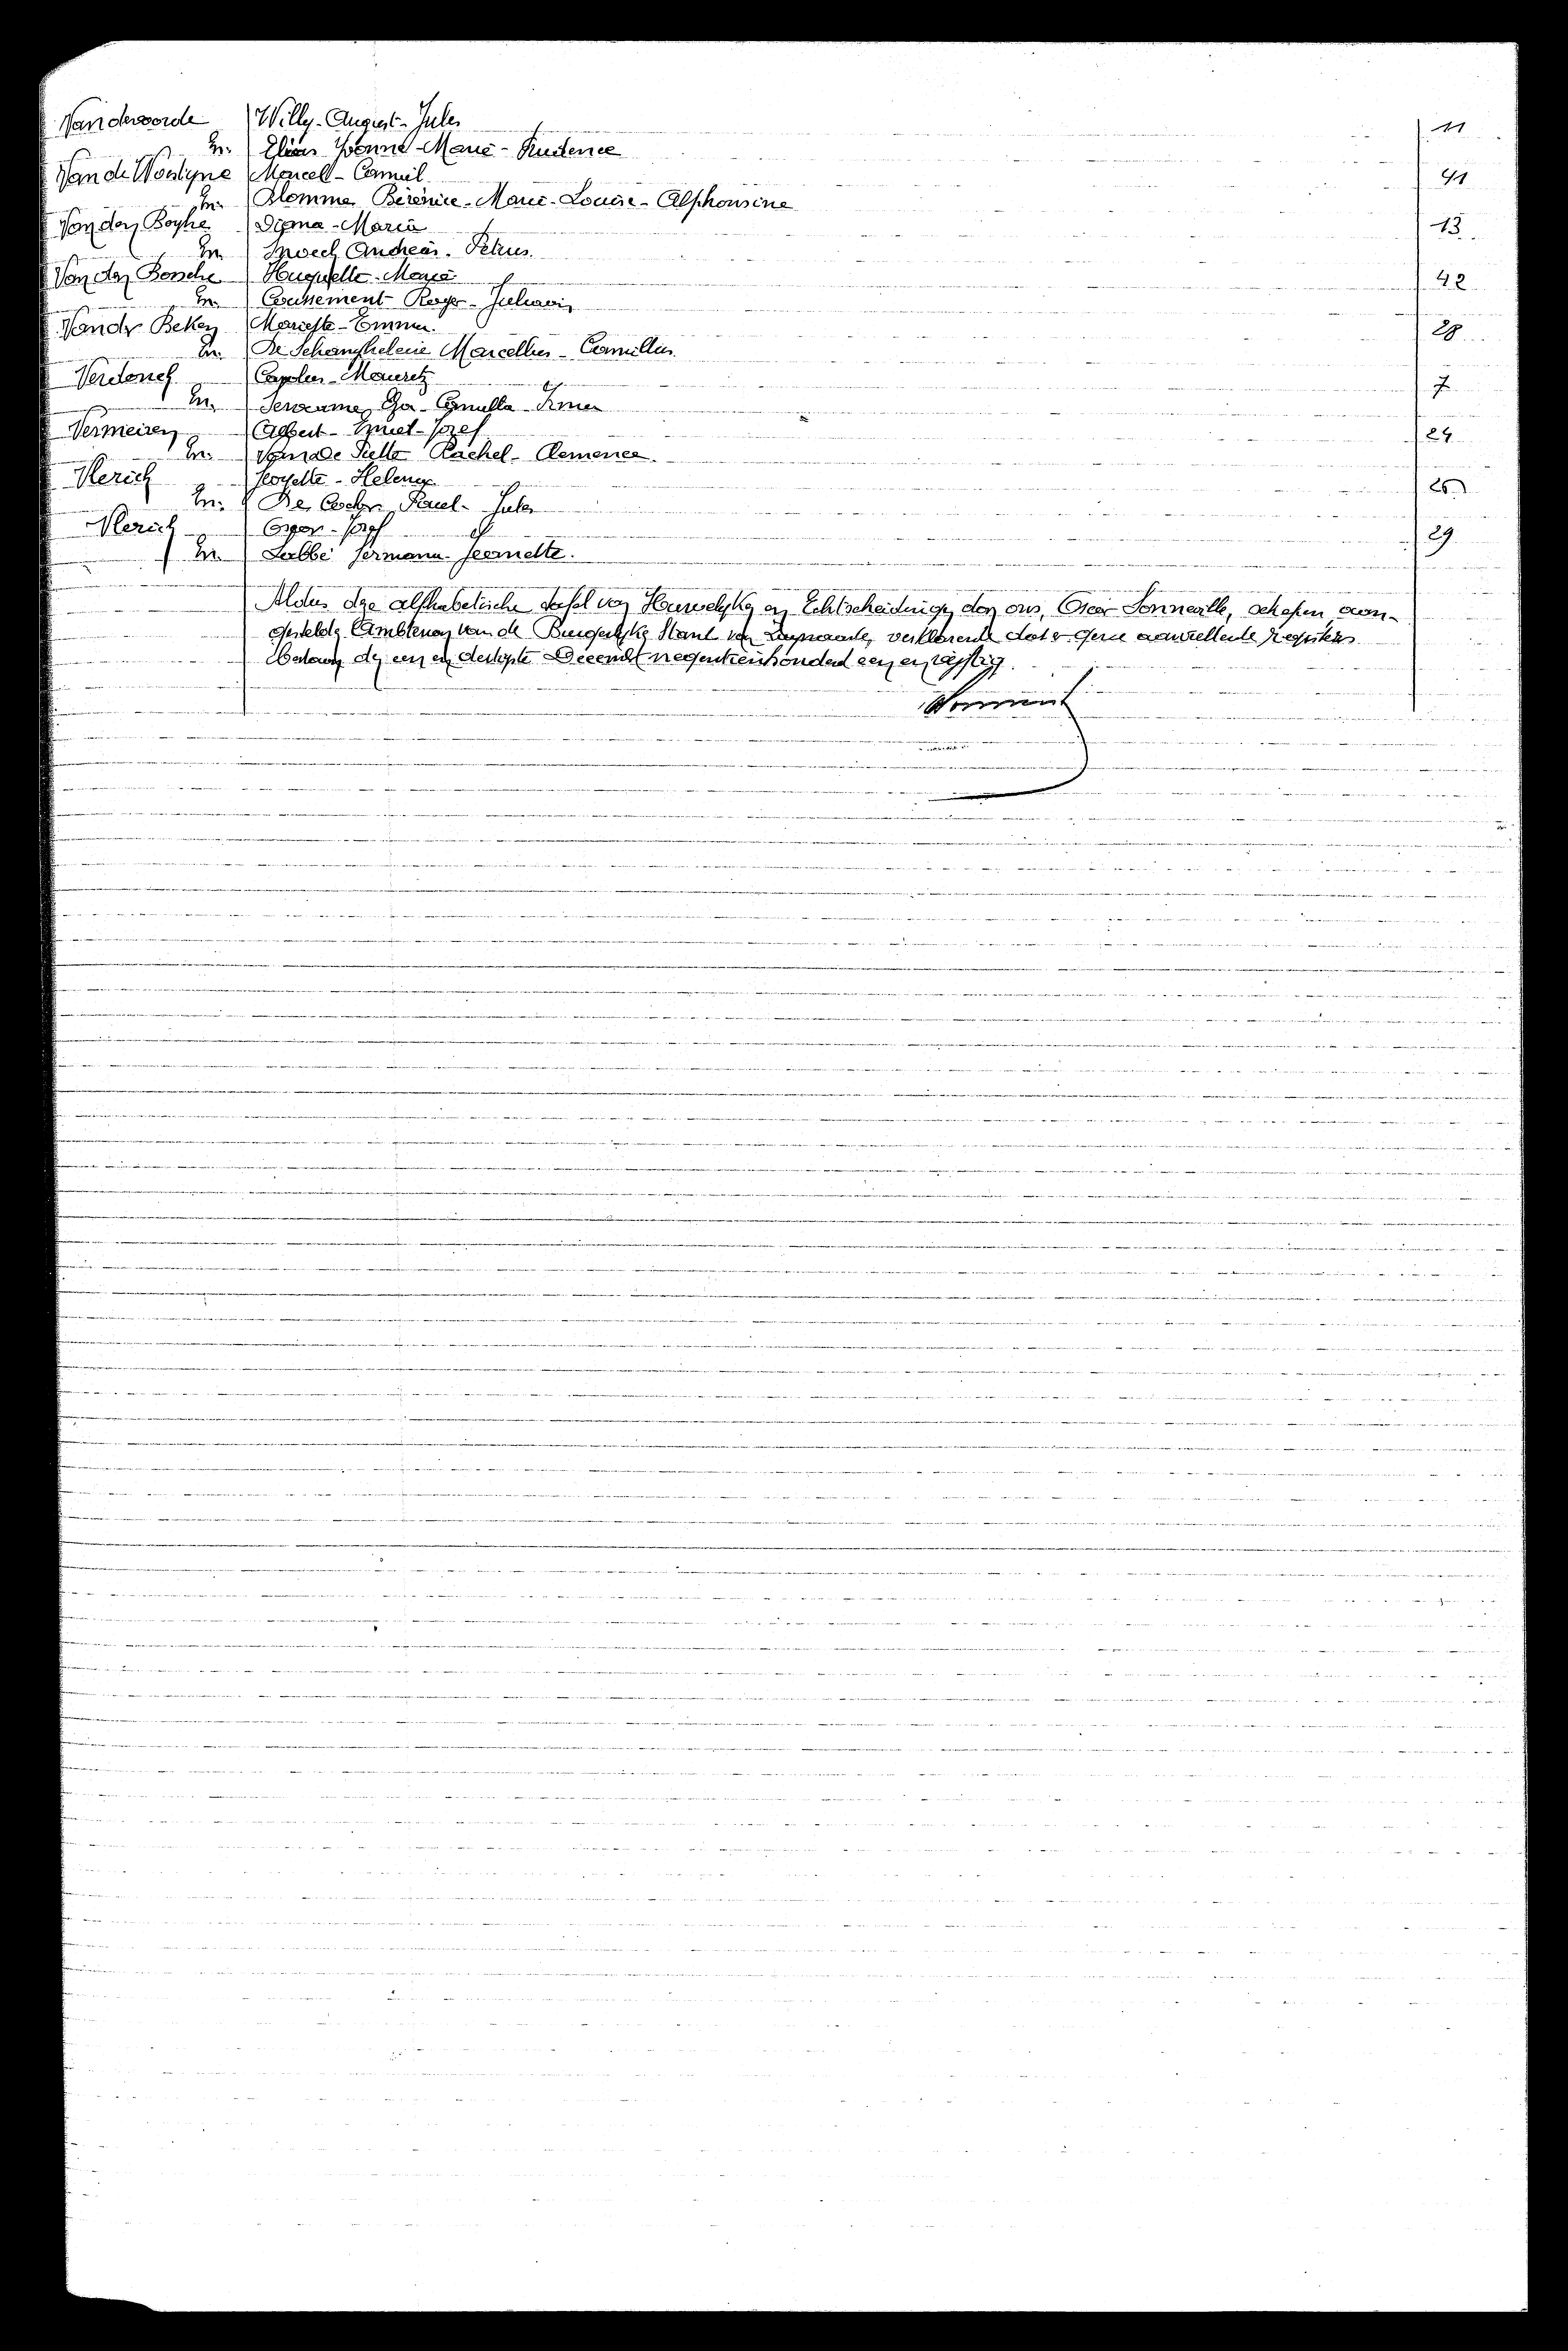 Vandevoorde Willy-August-Jules 11
En. Elias Yvonne-Marie-Prudence
Van de Woestyne Marcell-Camiel 41
En. Blomme Bérénice-Marie-Louise-Alphonsine
Van den Boghe Digna-Maria 13
En. Andreas-Petrus
Van den Bossche Huguette-Maria 42
En. Coussement Roger-Juliaan
Vander Beken Mariette-Emma 28
En. De Schamphelaere Marcellus-Camillus
Verdonck Carolus-Maurits 7
En. Eva-Camilla-Irma
Vermeiren Albert-Emiel-Jozef 24
En. Van de Putte Rachel-Clemence
Vlerick Georgette-Helena 26
En. De Paul-Jules
Vlerick Jozef 29
En. Labbé Germana-Jeannette.
Aldus dze alfhabetische tafel van Huwelyken en Echtscheidingen door ons, Oscar Sonneville, schepen, aan-
gestelde Ambtenaar van de Burgerlyke Stand van Zwijnaarde, verklarende dat er geene aanvullende registers
bestaan den een en dertigste December negentienhonderd een en vyftig.